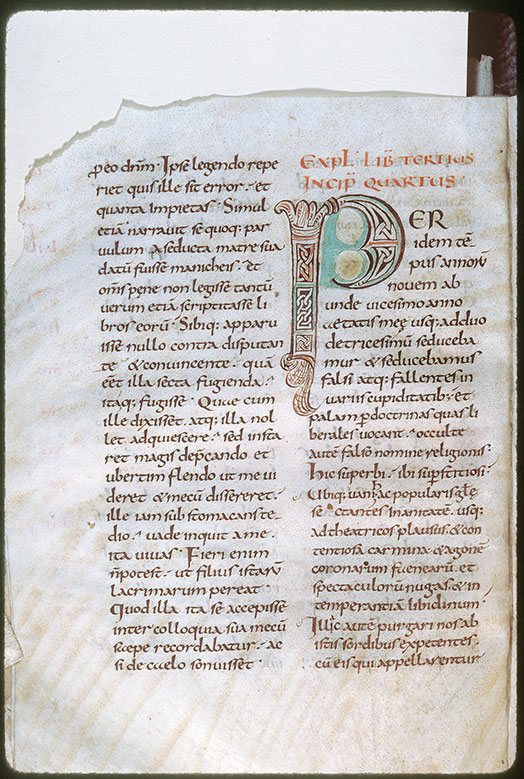 peo dnm · Ipse legendo repe
riet quis ille sit error · et
quanta impietas · Simul
etiā narravit se quoq; par
vulum a seducta matre sua
datū fuisse manicheis · et
omīs pęne non legisse tantū
verum etiā scriptitasse li
bros eorū · Sibiq; apparu
isse nullo contra disputan
te & convincente · quā
eēt illa secta fugienda ·
itaq; fugisse · Quae cum
ille dixisset · atq; illa nol
let adquiescere · sed insta
ret magis depcando et
ubertim flendo ut me vi
deret & mecū dissereret ·
ille iam substomacans te
dio · vade inquit a me ·
ita vivas · Fieri enim
n̄ potest · ut filius istarū
lacrimarum pereat ·
Quod illa ita se accepisse
inter colloquia sua mecū
saepe recordabatur · ac
si de caelo sonuisset ·
EXPL · LIB TERTIUS
INCIP QUARTUS ·
PER
idem tē
pus annorū
novem ab
unde vicesimo anno
aetatis meę usq; ad duo
detricesimū seduceba
mur & seducebamus
falsi atq; fallentes in
variis cupiditatib; et
palam p doctrinas quas li
berales vocant · occulte
autē falso nomine religionis ·
hic superbi · ibi superstitiosi ·
Ubiq; vani · hac popularis glę
sectantes inanitatē · usq;
ad theatricos plausus · & con
tentiosa carmina · & agonē
coronarum fųenearū · et
spectaculorū nugas · & in
temperantiā libidinum ·
Illic autē purgari nos ab
istis sordibus expetentes ·
cū eis qui appellarentur